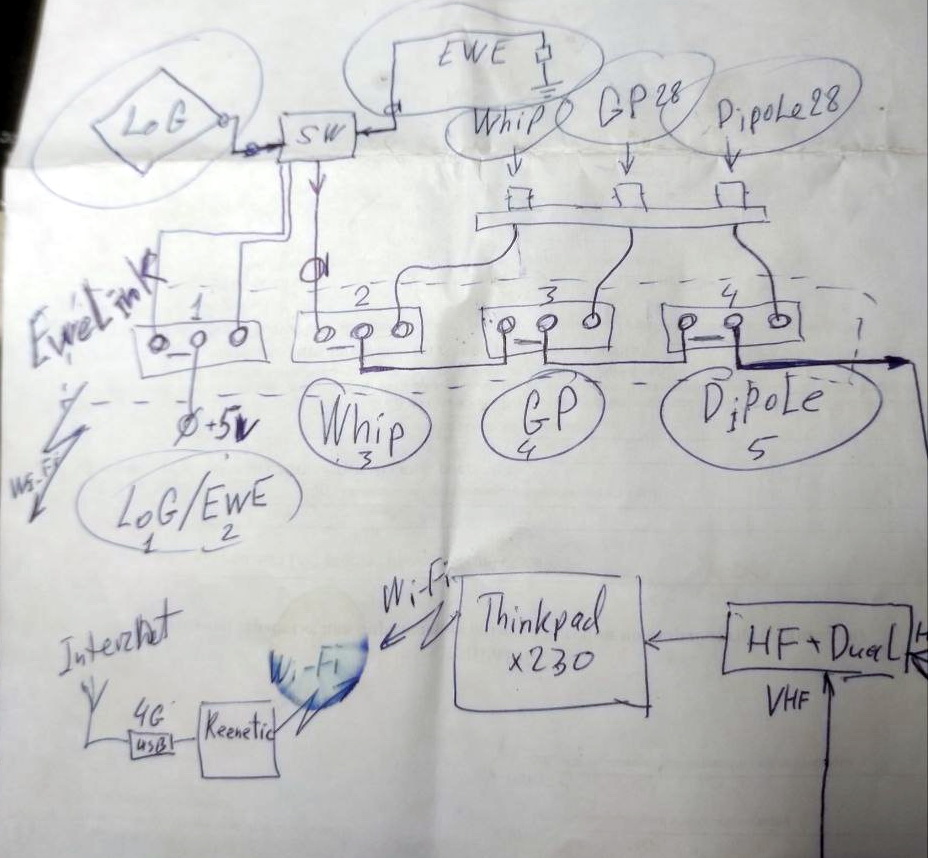 EWE
LoG
SW
Whip
GP 28
Dipole 28
EweLink
1
2
3
4
Ø +5V
Wi-Fi
LoG/EWE
1 2
Whip
3
GP
4
Dipole
5
Wi-Fi
Thinkpad
x230
HF + Dual
H
VHF
InterNet
Wi-Fi
4G
USB
Keenetic